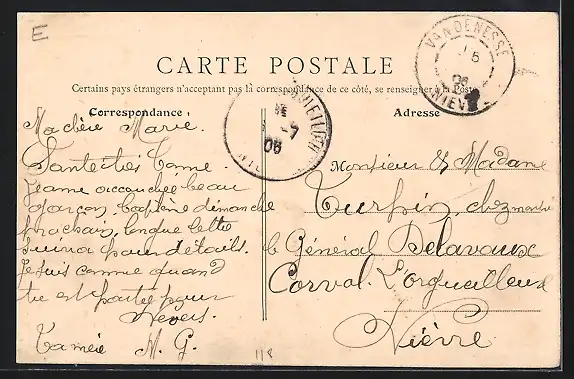 E
CARTE POSTALE
Certains pays étrangers n'acceptant pas la correspondance de ce côté, se renseigner à la Poste
Correspondance
Adresse
VANDENESSE
NIÈVRE
06
Ma chère Marie.
Santé très bonne
Jeanne accouchée beau
garçon, baptême dimanche
prochain, longue lettre
suivra pour détails.
Je suis comme quand
tu es partie pour
Nevers.
Ta mère M. G.
Monsieur & Madame
Turpin, chez
le Général Delavaux
Corval. L'orgueilleux
Nièvre
118